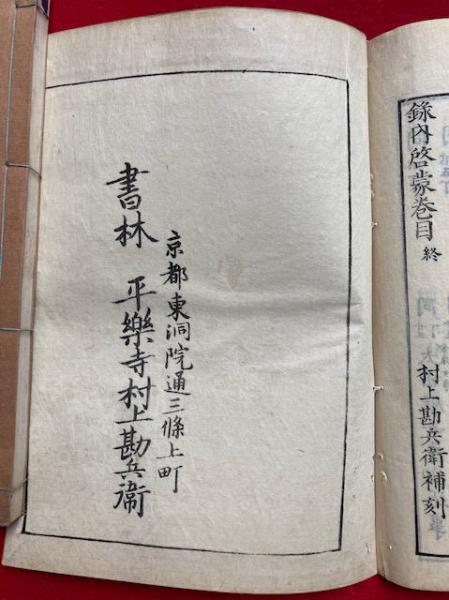 録内啓蒙巻目終
村上勘兵衛補刻
京都東洞院通三條上町
書林 平樂寺村上勘兵衛